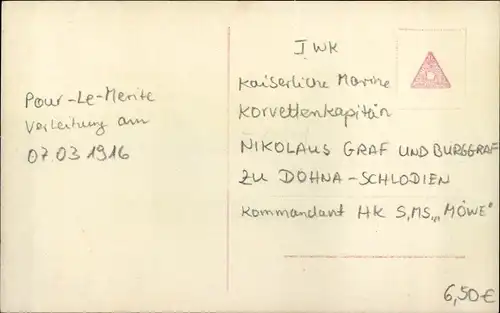 Pour-Le-Merite
Verleitung am
07.03 1916
I WK
Kaiserliche Marine
Korvettenkapitän
NIKOLAUS GRAF UND BURGGRAF
ZU DOHNA-SCHLODIEN
Kommandant HK S,MS,„MÖWE"
6,50€